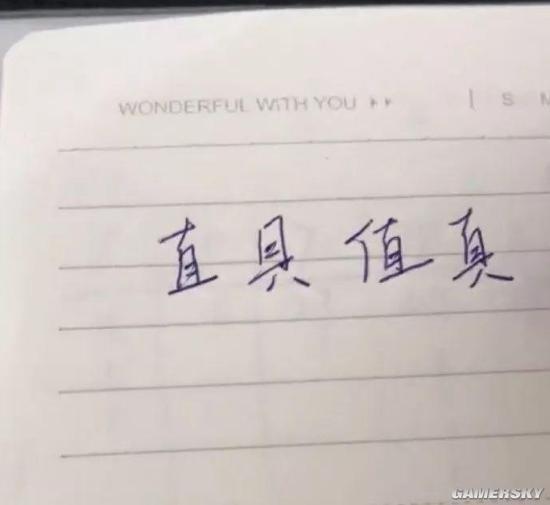 WONDERFUL WITH YOU | S M
直具值真
GAMERSKY